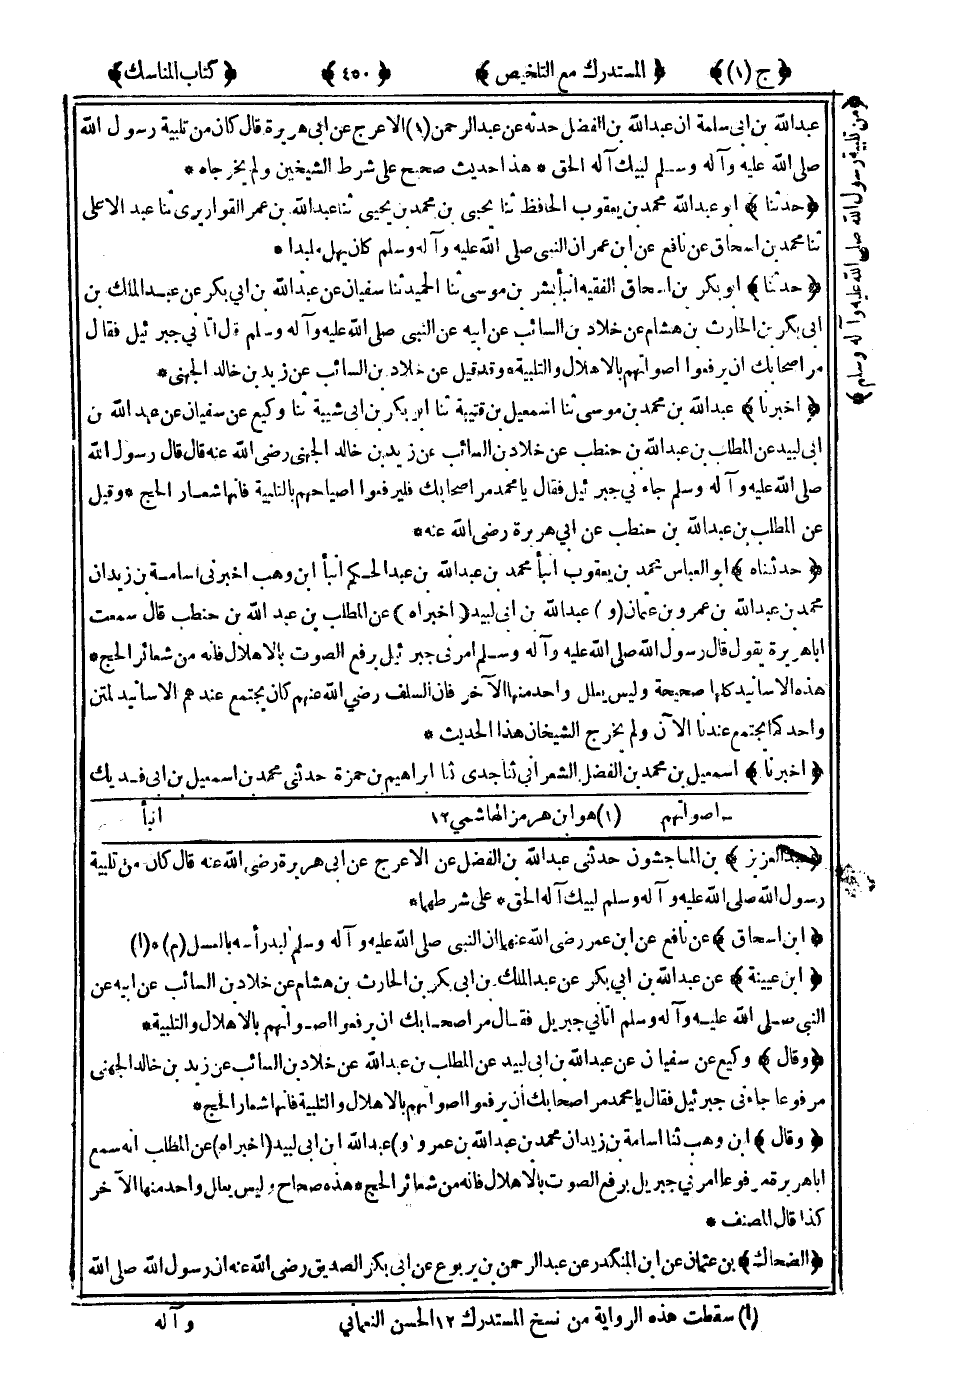 ﴿ ج (١) ﴾ ﴿ المستدرك مع التلخيص ﴾ ﴿ ٤٥٠ ﴾ ﴿ كتاب المناسك ﴾
﴿ من تلبية رسول الله صلى الله عليه وآله وسلم ﴾
عبدالله بن ابى سلمة ان عبدالله بن الفضل حدثه عن عبدالرحمن (١) الاعرج عن ابى هريرة قال كان من تلبية رسول الله
صلى الله عليه وآله وسلم لبيك آله الحق * هذا حديث صحيح على شرط الشيخين ولم يخرجاه *
﴿ حدثنا ﴾ ابو عبدالله محمد بن يعقوب الحافظ ثنا يحيى بن محمد بن يحيى ثنا عبدالله بن عمر القواريرى ثنا عبد الاعلى
ثنا محمد بن اسحاق عن نافع عن ابن عمر ان النبى صلى الله عليه وآله وسلم كان يهل ملبدا *
﴿ حدثنا ﴾ ابو بكر بن اسحاق الفقيه انبأ بشر بن موسى ثنا الحميد ثنا سفيان عن عبدالله بن ابي بكر عن عبدالملك بن
ابى بكر بن الحارث بن هشام عن خلاد بن السائب عن ابيه عن النبى صلى الله عليه وآله وسلم قال اتانى جبرئيل فقال
مر اصحابك ان يرفعوا اصواتهم بالاهلال والتلبية * وقد قيل عن خلاد بن السائب عن زيد بن خالد الجهنى *
﴿ اخبرنا ﴾ عبدالله بن محمد بن موسى ثنا اسمعيل بن قتيبة ثنا ابو بكر بن ابى شيبة ثنا وكيع عن سفيان عن عبد الله بن
ابى لبيد عن المطلب بن عبدالله بن حنطب عن خلاد بن السائب عن زيد بن خالد الجهنى رضى الله عنه قال قال رسول الله
صلى الله عليه وآله وسلم جاءنى جبرئيل فقال يا محمد مر اصحابك فليرفعوا اصياحهم بالتلبية فانها شعار الحج * وقيل
عن المطلب بن عبدالله بن حنطب عن ابي هريرة رضى الله عنه *
﴿ حدثناه ﴾ ابو العباس محمد بن يعقوب انبأ محمد بن عبدالله بن عبدالحكم انبأ ابن وهب اخبرنى اسامة بن زيد ان
محمد بن عبدالله بن عمرو بن عثمان (و) عبدالله بن ابى لبيد (اخبراه) عن المطلب بن عبد الله بن حنطب قال سمعت
اباهريرة يقول قال رسول الله صلى الله عليه وآله وسلم امرنى جبرئيل برفع الصوت بالاهلال فانه من شعائر الحج *
هذه الاسانيد كلها صحيحة وليس يعلل واحد منها الآخر فان السلف رضي الله عنهم كان يجتمع عندهم الاسانيد لمتن
واحد كما يجتمع عندنا الآن ولم يخرج الشيخان هذا الحديث *
﴿ اخبرنا ﴾ اسمعيل بن محمد بن الفضل الشعرانى ثنا جدى ثنا ابراهيم بن حمزة حدثنى محمد بن اسمعيل بن ابى فديك
ـ اصواتهم (١) هو ابن هرمز الهاشمي ١٢ انبأ
﴿ عبدالعزيز ﴾ بن الماجشون حدثنى عبدالله بن الفضل عن الاعرج عن ابى هريرة رضى الله عنه قال كان من تلبية
رسول الله صلى الله عليه وآله وسلم لبيك آله الحق * على شرطهما *
﴿ ابن اسحاق ﴾ عن نافع عن ابن عمر رضى الله عنهما ان النبى صلى الله عليه وآله وسلم لبد رأسه بالعسل (م) * (أ)
﴿ ابن عيينة ﴾ عن عبدالله بن ابي بكر عن عبدالملك بن ابى بكر بن الحارث بن هشام عن خلاد بن السائب عن ابيه عن
النبى صلى الله عليه وآله وسلم اتانى جبريل فقال مر اصحابك ان يرفعوا اصواتهم بالاهلال والتلبية *
﴿ وقال ﴾ وكيع عن سفيان عن عبدالله بن ابى لبيد عن المطلب بن عبدالله عن خلاد بن السائب عن زيد بن خالد الجهنى
مرفوعا جاءنى جبرئيل فقال يا محمد مر اصحابك أن يرفعوا اصواتهم بالاهلال والتلبية فانها شعار الحج *
﴿ وقال ﴾ ابن وهب ثنا اسامة بن زيد ان محمد بن عبدالله بن عمرو (و) عبدالله ابن ابى لبيد (اخبراه) عن المطلب انه سمع
اباهريرة مرفوعا امرنى جبريل برفع الصوت بالاهلال فانه من شعائر الحج * هذه صحاح وليس يعلل واحد منها الآخر
كذا قال المصنف *
﴿ الضحاك ﴾ بن عثمان عن ابن المنكدر عن عبدالرحمن بن يربوع عن ابى بكر الصديق رضى الله عنه ان رسول الله صلى الله
(أ) سقطت هذه الرواية من نسخ المستدرك ١٢ الحسن النعماني وآله